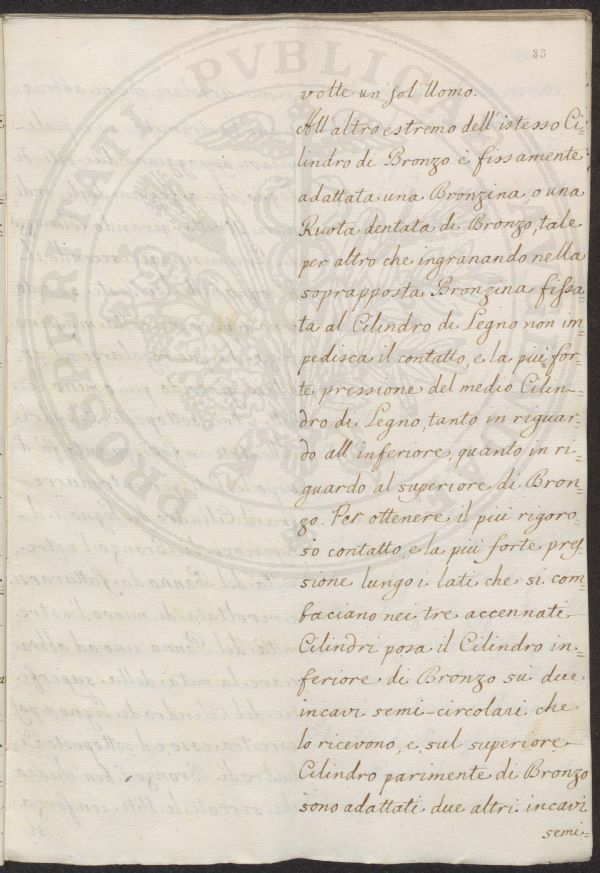 35
volte un sol' Uomo.
All'altro estremo dell'istesso Ci-
lindro di Bronzo è fissamente
adattata una Bronzina, o una
Ruota dentata di Bronzo, tale
per altro che ingranando nella
soprapposta Bronzina fissa-
ta al Cilindro di Legno non im-
pedisca il contatto, e la piu for-
te pressione del medio Cilin-
dro di Legno, tanto in riguar-
do all'inferiore, quanto in ri-
guardo al superiore di Bron-
zo. Per ottenere il piu rigoro-
so contatto, e la piu forte pres-
sione lungo i lati che si com-
baciano nei tre accennati
Cilindri posa il Cilindro in-
feriore di Bronzo su due
incavi semi-circolari che
lo ricevono, e sul superiore
Cilindro parimente di Bronzo
sono adattati due altri incavi
semi-
PROSPERITATI PVBLICAE